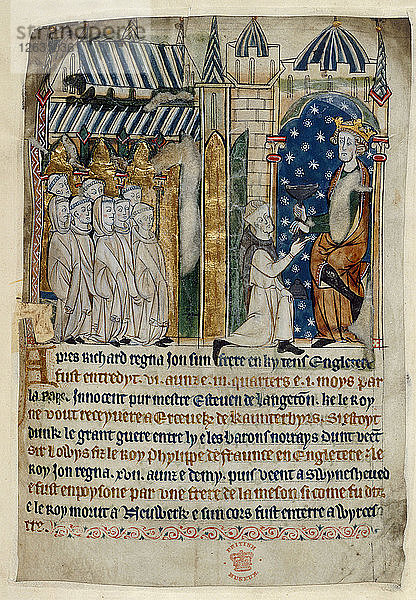 Apres Richard regna Jon sun frere en ky tens Engletere
fust entredyt .vi. aunz e .iii. quarters e .i. moys par
la Pape Innocent pur mestre Estevene de Langeton. ke le Roy
ne vout receyvere a Erceveske de Kaunterbyrs. Si estoyt
dunk le grant guere entre ly e les barons norrays dunt veent
Sir Lowys fiz le Roy Phylype de Fraunce en Engletere. le
Roy Jon regna .xvii. aunz e demy. puis veent a Swynesheued
e fust enpoysone par une frere de la meson si come fu dit.
e le Roy morut a Neuwerk e sun cors fust enterre a Wyrces-
tre.
BRITISH
MUSEUM